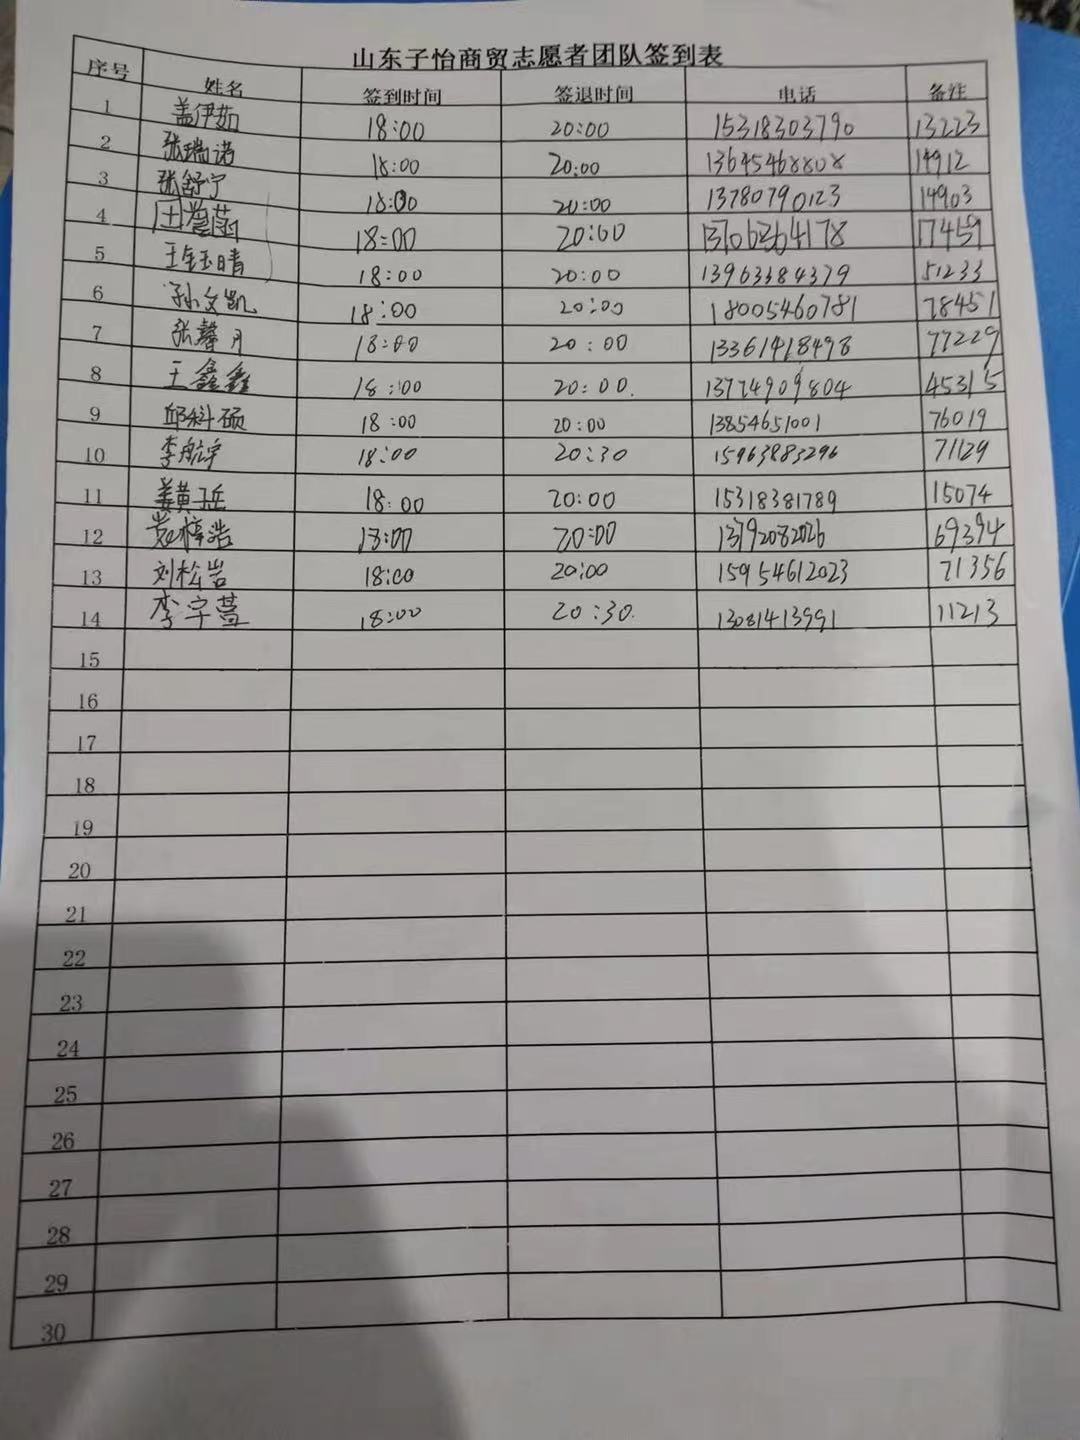 山东子怡商贸志愿者团队签到表
序号 姓名 签到时间 签退时间 电话 备注
1 盖伊茹 18:00 20:00 15318303790 13223
2 张瑞诺 18:00 20:00 13645468808 14912
3 张舒宁 18:00 20:00 13780790123 14903
4 18:00 20:00 13706364178 17459
5 18:00 20:00 13963384379 51233
6 孙文凯 18:00 20:00 18005460781 78451
7 张馨月 18:00 20:00 13361418498 77229
8 王鑫鑫 18:00 20:00. 13774909804 45315
9 邱科硕 18:00 20:00 13854651001 76019
10 李航宇 18:00 20:30 15963883296 71129
11 姜黄子岳 18:00 20:00 15318381789 15074
12 18:00 20:00 13792082026 69394
13 刘松岩 18:00 20:00 15954612023 71356
14 李宇萱 18:00 20:30. 13081413991 11213
15
16
17
18
19
20
21
22
23
24
25
26
27
28
29
30